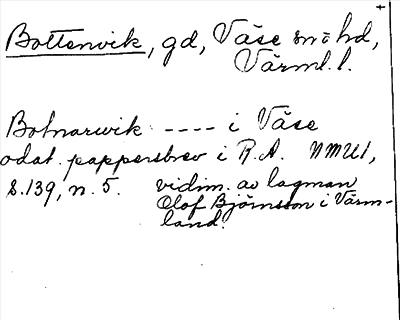 Bottenvik, gd, Väse sn o hd,
Värml. l.
Botnarwik ---- i Väse
odat. pappersbrev i R.A. NMU1,
s.139, n. 5. vidim. av lagman
Olof Björnsson i Värm-
land.